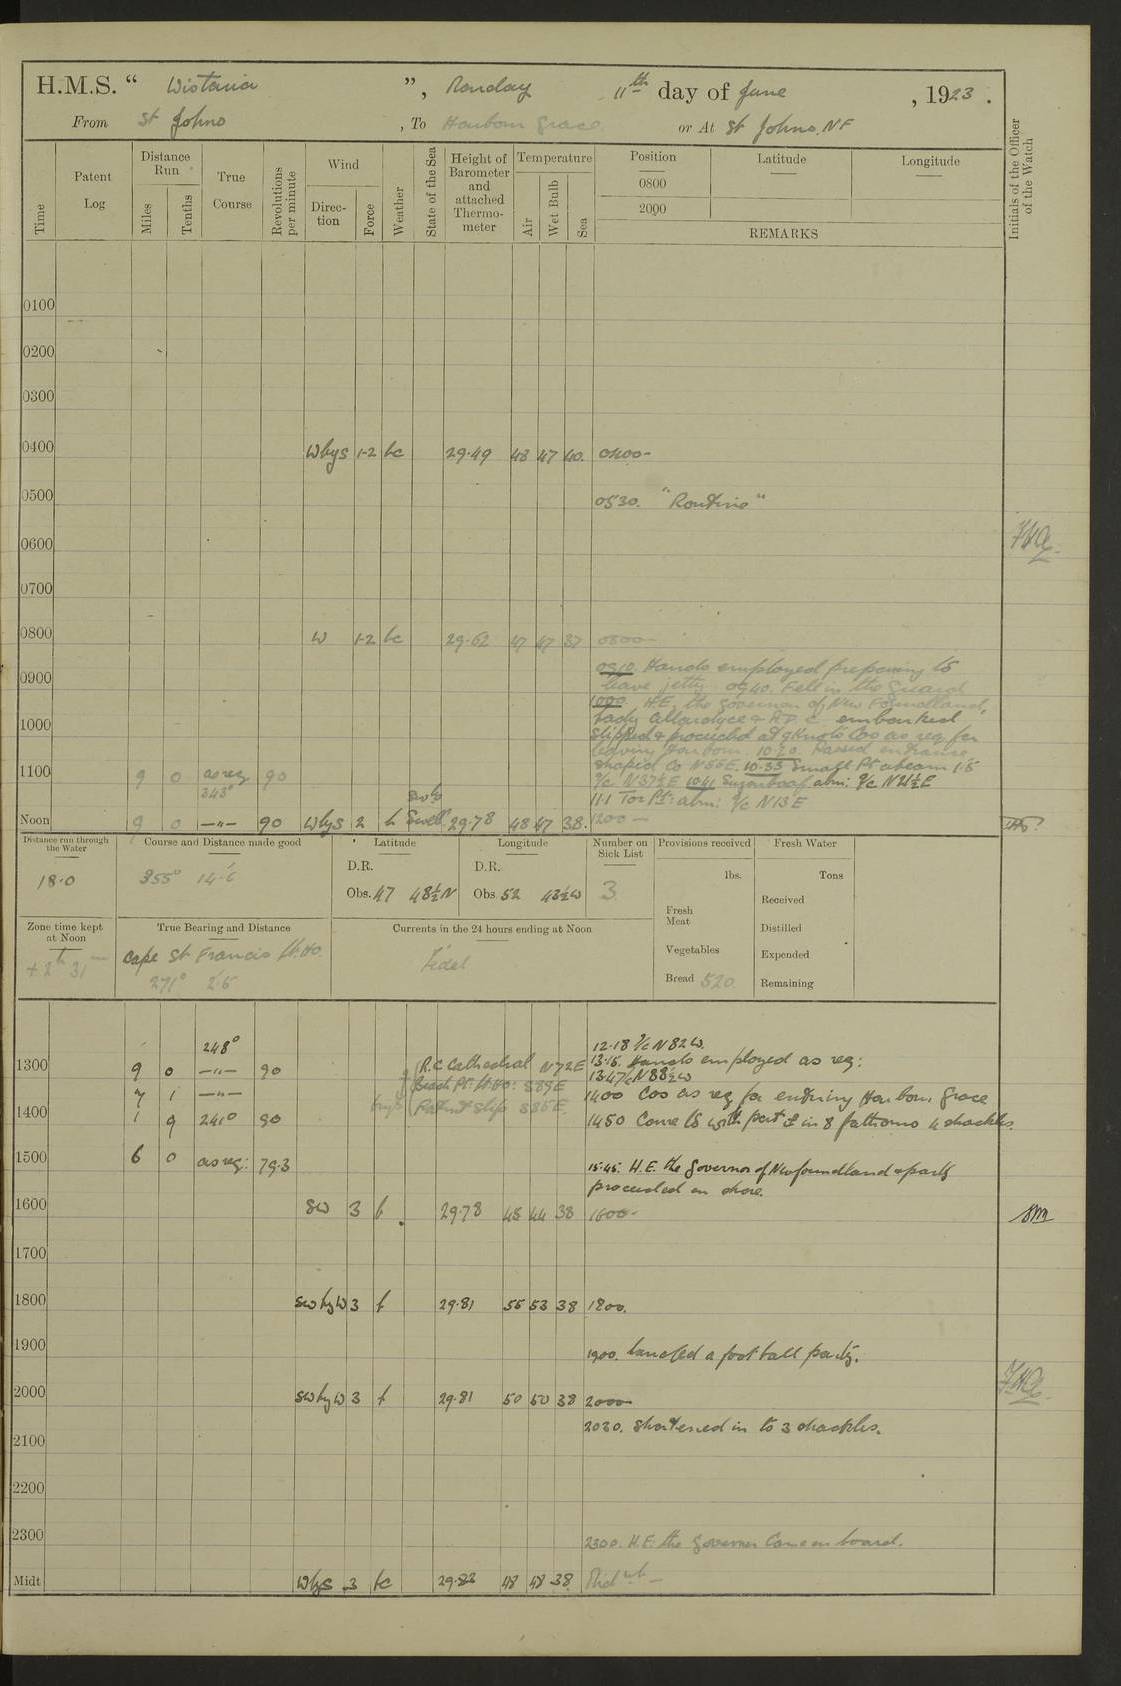 H.M.S. “ Wistaria ”, Monday 11th day of June, 1923.
From St Johns, To Harbour Grace or At St Johns. NF
Time
Patent Log
Distance Run
Miles
Tenths
True Course
Revolutions per minute
Wind
Direction
Force
Weather
State of the Sea
Height of Barometer and attached Thermometer
Temperature
Air
Wet Bulb
Sea
Position
Latitude
Longitude
0800
2000
REMARKS
Initials of the Officer of the Watch
0100
0200
0300
0400 WbyS 1-2 bc 29.49 48 47 40. 0400-
0500 0530. "Routine"
0600
0700
0800 W 1-2 bc 29.62 47 47 37 0800-
0910. Hands employed preparing to
0900 leave jetty. 0940. Fell in the Guard
1000. H.E. the Governor of New Foundland,
1000 Lady Allardyce & A.D.C. embarked
Slipped & proceeded at 9 Knots Cos as req for
leaving Harbour. 10.20. Passed entrance
shaped Co N56E. 10.33 Small Pt abeam 1.5
1100 9 0 as req 90 a/c N37½E 10.41 Sugarloaf abm: a/c N21½E
343° 11.1 Tor Pt: abm: a/c N13E
Noon 9 0 —"— 90 WbyS 2 b Swell 29.78 48 47 38. 1200 —
Distance run through the Water
18.0
Course and Distance made good
355° 14.6
Latitude
D.R.
Obs. 47 48½N
Longitude
D.R.
Obs. 52 43½W
Number on Sick List
3
Provisions received
lbs.
Fresh Meat
Vegetables
Bread 520
Fresh Water
Tons
Received
Distilled
Expended
Remaining
Zone time kept at Noon
+ 2h 31m
True Bearing and Distance
Cape St Francis Lt. Ho.
271° 2.5
Currents in the 24 hours ending at Noon
Tidal
248° 12.18 a/c N82W.
1300 9 0 —"— 90 R.C Cathedral N72E 13.15. Hands employed as req:
Beach Pt. Lt. Ho: S89E 13.47 a/c N88½W
7 1 —"— Patent slip S85E 1400 Cos as req for entering Harbour Grace
1400 1 9 241° 90 1450 Came to with port in 8 fathoms 4 shackles.
1500 6 0 as req: 79.3 15.45. H.E. the Governor of Newfoundland & party
proceeded on shore.
1600 SW 3 b 29.78 45 44 38 1600-
1700
1800 SWbyW 3 b 29.81 55 53 38 1800.
1900 1900. Landed a football party.
2000 SWbyW 3 b 29.81 50 50 38 2000
2030. Shortened in to 3 shackles.
2100
2200
2300 2300. H.E. the Governor Came on board.
Midt WbyS 3 bc 29.83 48 48 38 Midnt —